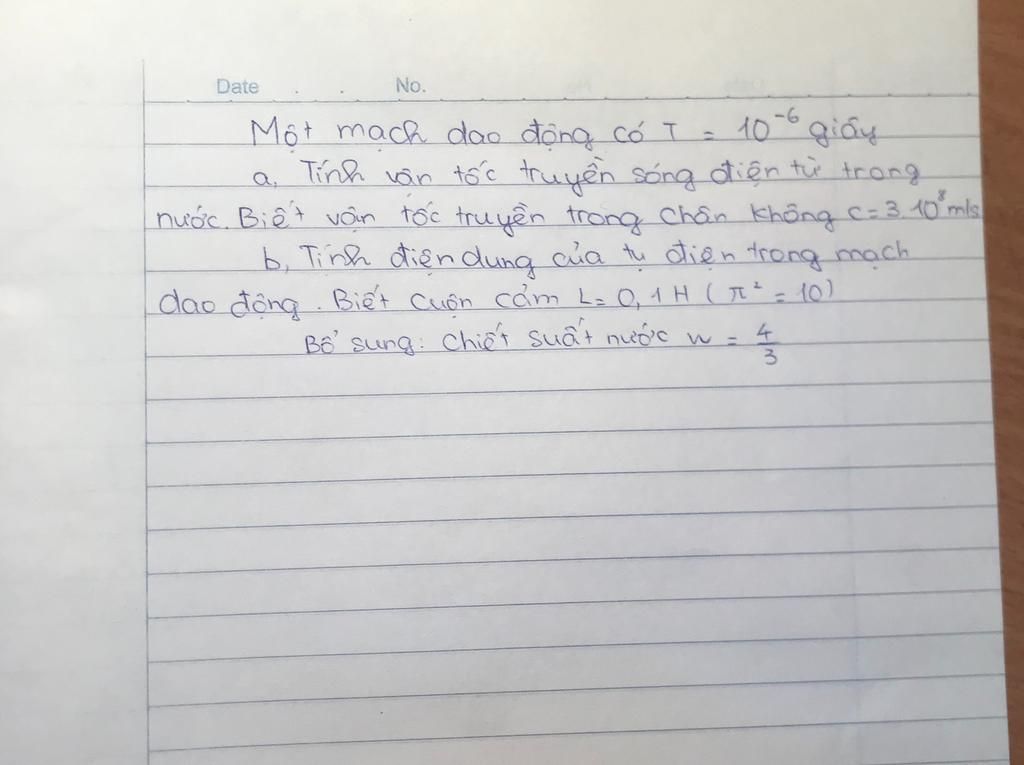 Date . . No.
Một mạch dao động có T = 10⁻⁶ giây
a, Tính vận tốc truyền sóng điện từ trong
nước. Biết vận tốc truyền trong chân không c = 3.10⁸ m/s
b, Tính điện dung của tụ điện trong mạch
dao động. Biết cuộn cảm L = 0,1 H ( π² = 10)
Bổ sung: Chiết suất nước n = 4/3